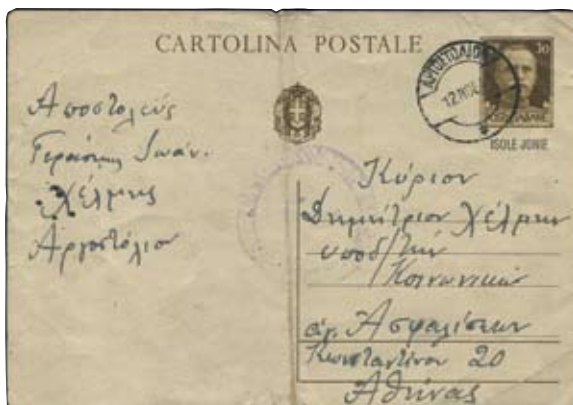 CARTOLINA POSTALE
ΑΡΓΟΣΤΟΛΙΟΝ
30
ISOLE JONIE
Αποστολεύς
Γεράσιμος Ιωάν.
Χέλμης
Αργοστόλιον
Κύριον
Δημήτριον Χέλμην
υποδ/την
Κοινωνικών
Ασφαλίσεων
Κωνσταντίνου 20
Αθήνας